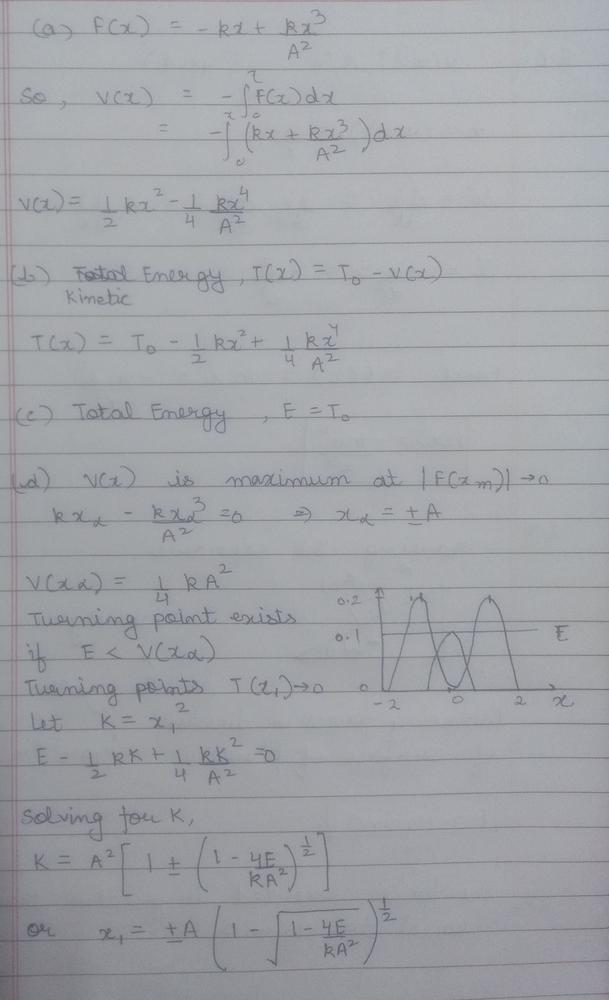 (a) F(x) = -kx + kx³/A²
So, V(x) = -∫₀ˣ F(x) dx
= -∫₀ˣ (kx + kx³/A²) dx
V(x) = 1/2 kx² - 1/4 kx⁴/A²
(b) Kinetic Energy, T(x) = T₀ - V(x)
T(x) = T₀ - 1/2 kx² + 1/4 kx⁴/A²
(c) Total Energy, E = T₀
(d) V(x) is maximum at |F(xₘ)| → 0
kx_α - kx_α³/A² = 0 ⇒ x_α = ±A
V(x_α) = 1/4 kA²
Turning point exists
if E < V(x_α)
Turning points T(x₁) → 0
Let K = x₁²
E - 1/2 kK + 1/4 kK²/A² = 0
0.2
0.1
E
0
-2 0 2 x
Solving for K,
K = A² [1 ± (1 - 4E/kA²)^(1/2)]
or x₁ = ±A (1 - √(1 - 4E/kA²))^(1/2)